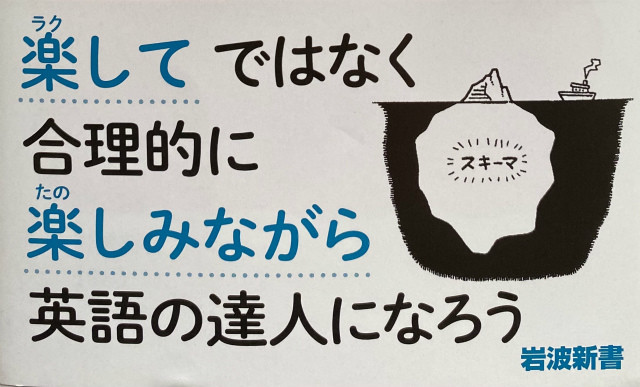 ラク
楽して ではなく
合理的に
たの
楽しみながら
英語の達人になろう
スキーマ
岩波新書